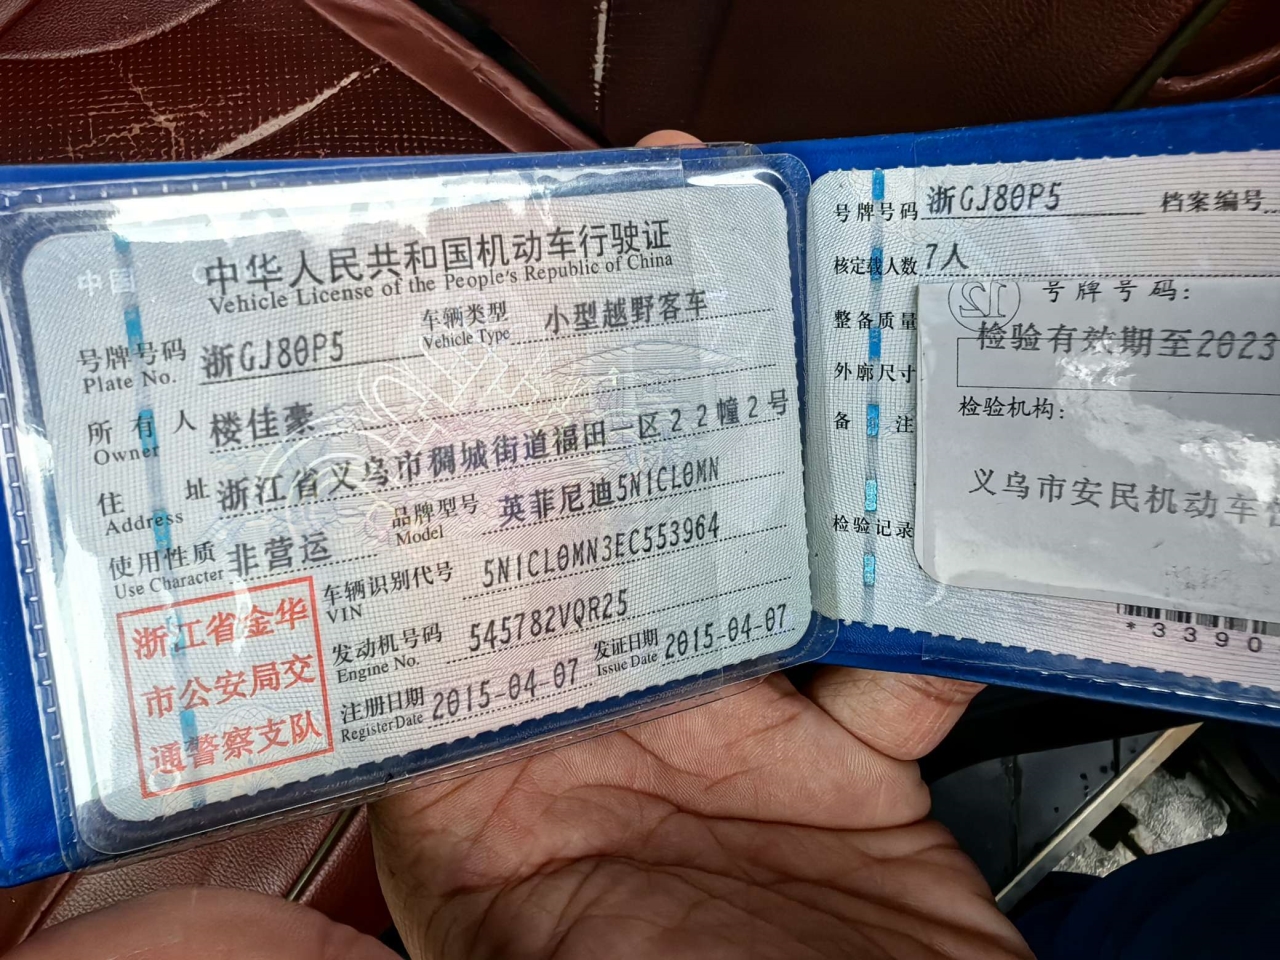 中国
中华人民共和国机动车行驶证
Vehicle License of the People's Republic of China
号牌号码 浙GJ80P5 车辆类型 小型越野客车
Plate No. Vehicle Type
所有人 楼佳豪
Owner
住址 浙江省义乌市稠城街道福田一区22幢2号
Address
使用性质 非营运 品牌型号 英菲尼迪5N1CL0MN
Use Character Model
车辆识别代号 5N1CL0MN3EC553964
VIN
发动机号码 545782VQR25
Engine No.
注册日期 2015-04-07 发证日期 2015-04-07
Register Date Issue Date
浙江省金华
市公安局交
通警察支队
号牌号码 浙GJ80P5 档案编号
核定载人数 7人
整备质量
外廓尺寸
备注
检验记录
12 号牌号码:
检验有效期至2023
检验机构:
义乌市安民机动车
*3390